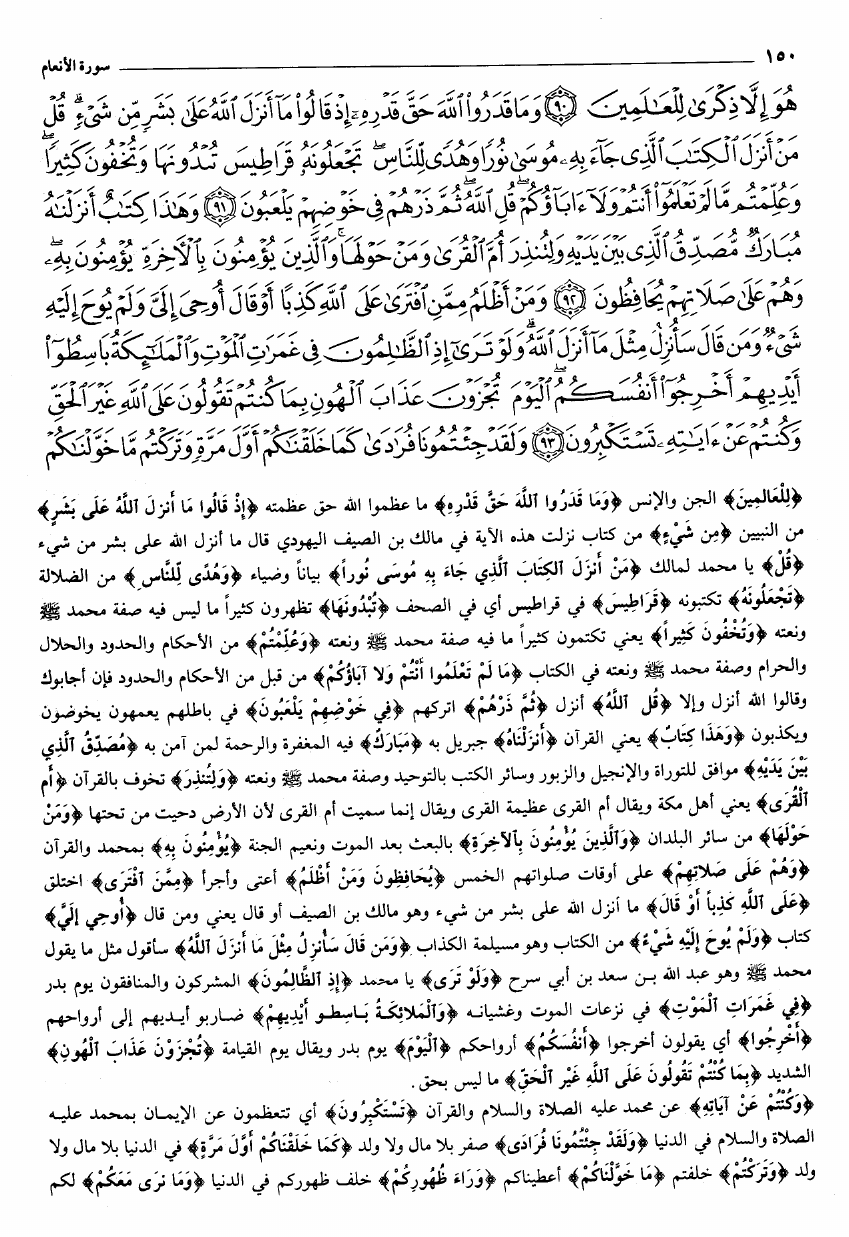 ١٥٠ سورة الأنعام
هُوَ إِلَّا ذِكْرَىٰ لِلْعَـٰلَمِينَ ﴿٩٠﴾ وَمَا قَدَرُوا۟ ٱللَّهَ حَقَّ قَدْرِهِۦٓ إِذْ قَالُوا۟ مَآ أَنزَلَ ٱللَّهُ عَلَىٰ بَشَرٍ مِّن شَىْءٍ ۗ قُلْ
مَنْ أَنزَلَ ٱلْكِتَـٰبَ ٱلَّذِى جَآءَ بِهِۦ مُوسَىٰ نُورًا وَهُدًى لِّلنَّاسِ ۖ تَجْعَلُونَهُۥ قَرَاطِيسَ تُبْدُونَهَا وَتُخْفُونَ كَثِيرًا ۖ
وَعُلِّمْتُم مَّا لَمْ تَعْلَمُوٓا۟ أَنتُمْ وَلَآ ءَابَآؤُكُمْ ۖ قُلِ ٱللَّهُ ۖ ثُمَّ ذَرْهُمْ فِى خَوْضِهِمْ يَلْعَبُونَ ﴿٩١﴾ وَهَـٰذَا كِتَـٰبٌ أَنزَلْنَـٰهُ
مُبَارَكٌ مُّصَدِّقُ ٱلَّذِى بَيْنَ يَدَيْهِ وَلِتُنذِرَ أُمَّ ٱلْقُرَىٰ وَمَنْ حَوْلَهَا ۚ وَٱلَّذِينَ يُؤْمِنُونَ بِٱلْـَٔاخِرَةِ يُؤْمِنُونَ بِهِۦ ۖ
وَهُمْ عَلَىٰ صَلَاتِهِمْ يُحَافِظُونَ ﴿٩٢﴾ وَمَنْ أَظْلَمُ مِمَّنِ ٱفْتَرَىٰ عَلَى ٱللَّهِ كَذِبًا أَوْ قَالَ أُوحِىَ إِلَىَّ وَلَمْ يُوحَ إِلَيْهِ
شَىْءٌ وَمَن قَالَ سَأُنزِلُ مِثْلَ مَآ أَنزَلَ ٱللَّهُ ۗ وَلَوْ تَرَىٰٓ إِذِ ٱلظَّـٰلِمُونَ فِى غَمَرَٰتِ ٱلْمَوْتِ وَٱلْمَلَـٰٓئِكَةُ بَاسِطُوٓا۟
أَيْدِيهِمْ أَخْرِجُوٓا۟ أَنفُسَكُمُ ۖ ٱلْيَوْمَ تُجْزَوْنَ عَذَابَ ٱلْهُونِ بِمَا كُنتُمْ تَقُولُونَ عَلَى ٱللَّهِ غَيْرَ ٱلْحَقِّ
وَكُنتُمْ عَنْ ءَايَـٰتِهِۦ تَسْتَكْبِرُونَ ﴿٩٣﴾ وَلَقَدْ جِئْتُمُونَا فُرَٰدَىٰ كَمَا خَلَقْنَـٰكُمْ أَوَّلَ مَرَّةٍ وَتَرَكْتُم مَّا خَوَّلْنَـٰكُمْ
﴿لِلْعَالَمِينَ﴾ الجن والإنس ﴿وَمَا قَدَرُوا ٱللَّهَ حَقَّ قَدْرِهِ﴾ ما عظموا الله حق عظمته ﴿إِذْ قَالُوا مَا أَنزَلَ ٱللَّهُ عَلَى بَشَرٍ﴾
من النبيين ﴿مِن شَيْءٍ﴾ من كتاب نزلت هذه الآية في مالك بن الصيف اليهودي قال ما أنزل الله على بشر من شيء
﴿قُلْ﴾ يا محمد لمالك ﴿مَنْ أَنزَلَ ٱلكِتَابَ ٱلَّذِي جَاءَ بِهِ مُوسَى نُوراً﴾ بياناً وضياء ﴿وَهُدًى لِّلنَّاسِ﴾ من الضلالة
﴿تَجْعَلُونَهُ﴾ تكتبونه ﴿قَرَاطِيسَ﴾ في قراطيس أي في الصحف ﴿تُبْدُونَهَا﴾ تظهرون كثيراً ما ليس فيه صفة محمد ﷺ
ونعته ﴿وَتُخْفُونَ كَثِيراً﴾ يعني تكتمون كثيراً ما فيه صفة محمد ﷺ ونعته ﴿وَعُلِّمْتُمْ﴾ من الأحكام والحدود والحلال
والحرام وصفة محمد ﷺ ونعته في الكتاب ﴿مَا لَمْ تَعْلَمُوا أَنْتُمْ وَلا آبَاؤُكُمْ﴾ من قبل من الأحكام والحدود فإن أجابوك
وقالوا الله أنزل وإلا ﴿قُلِ ٱللَّهُ﴾ أنزل ﴿ثُمَّ ذَرْهُمْ﴾ اتركهم ﴿فِي خَوْضِهِمْ يَلْعَبُونَ﴾ في باطلهم يعمهون يخوضون
ويكذبون ﴿وَهَذَا كِتَابٌ﴾ يعني القرآن ﴿أَنزَلْنَاهُ﴾ جبريل به ﴿مُبَارَكٌ﴾ فيه المغفرة والرحمة لمن آمن به ﴿مُصَدِّقُ ٱلَّذِي
بَيْنَ يَدَيْهِ﴾ موافق للتوراة والإنجيل والزبور وسائر الكتب بالتوحيد وصفة محمد ﷺ ونعته ﴿وَلِتُنذِرَ﴾ تخوف بالقرآن ﴿أُم
ٱلْقُرَى﴾ يعني أهل مكة ويقال أم القرى عظيمة القرى ويقال إنما سميت أم القرى لأن الأرض دحيت من تحتها ﴿وَمَنْ
حَوْلَهَا﴾ من سائر البلدان ﴿وَٱلَّذِينَ يُؤْمِنُونَ بِٱلآخِرَةِ﴾ بالبعث بعد الموت ونعيم الجنة ﴿يُؤْمِنُونَ بِهِ﴾ بمحمد والقرآن
﴿وَهُمْ عَلَى صَلاتِهِمْ﴾ على أوقات صلواتهم الخمس ﴿يُحَافِظُونَ وَمَنْ أَظْلَمُ﴾ أعتى وأجرأ ﴿مِمَّنِ ٱفْتَرَى﴾ اختلق
﴿عَلَى ٱللَّهِ كَذِباً أَوْ قَالَ﴾ ما أنزل الله على بشر من شيء وهو مالك بن الصيف أو قال يعني ومن قال ﴿أُوحِي إِلَيَّ﴾
كتاب ﴿وَلَمْ يُوحَ إِلَيْهِ شَيْءٌ﴾ من الكتاب وهو مسيلمة الكذاب ﴿وَمَن قَالَ سَأُنزِلُ مِثْلَ مَا أَنزَلَ ٱللَّهُ﴾ سأقول مثل ما يقول
محمد ﷺ وهو عبد الله بـن سعد بن أبي سرح ﴿وَلَوْ تَرَى﴾ يا محمد ﴿إِذِ ٱلظَّالِمُونَ﴾ المشركون والمنافقون يوم بدر
﴿فِي غَمَرَاتِ ٱلْمَوْتِ﴾ في نزعات الموت وغشيانـه ﴿وَٱلْمَلائِكَةُ بَاسِطو أَيْدِيهِمْ﴾ ضـاربو أيـديهم إلى أرواحهم
﴿أَخْرِجُوا﴾ أي يقولون أخرجوا ﴿أَنفُسَكُمُ﴾ أرواحكم ﴿ٱلْيَوْمَ﴾ يوم بدر ويقال يوم القيامة ﴿تُجْزَوْنَ عَذَابَ ٱلْهُونِ﴾
الشديد ﴿بِمَا كُنْتُمْ تَقُولُونَ عَلَى ٱللَّهِ غَيْرَ ٱلْحَقِّ﴾ ما ليس بحق.
﴿وَكُنْتُمْ عَنْ آيَاتِهِ﴾ عن محمد عليه الصلاة والسلام والقرآن ﴿تَسْتَكْبِرُونَ﴾ أي تتعظمون عن الإيمـان بمحمد عليـه
الصلاة والسلام في الدنيا ﴿وَلَقَدْ جِئْتُمُونَا فُرَادَى﴾ صفر بلا مال ولا ولد ﴿كَمَا خَلَقْنَاكُمْ أَوَّلَ مَرَّةٍ﴾ في الدنيا بلا مال ولا
ولد ﴿وَتَرَكْتُمْ﴾ خلفتم ﴿مَا خَوَّلْنَاكُمْ﴾ أعطيناكم ﴿وَرَاءَ ظُهُورِكُمْ﴾ خلف ظهوركم في الدنيا ﴿وَمَا نَرَى مَعَكُمْ﴾ لكم